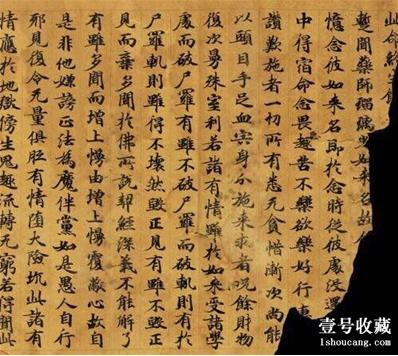 此命終
暫聞藥師瑠璃光如來名故
憶念彼如來名即於念時從彼處沒還
中得宿命念畏惡趣苦不樂欲樂好行惠
讚歎施者一切所有悉无貪惜漸次尚能
以頭目手足血宍身分施來求者況餘財物
復次曼殊室利若諸有情雖於如來受諸學
處而破尸羅有雖不破尸羅而破軌則有於
尸羅軌則雖得不壞然毀正見有雖不毀正
見而棄多聞於佛所說契經深義不能解了
有雖多聞而增上慢由增上慢覆蔽心故自
是非他嫌謗正法為魔伴黨如是愚人自行
邪見復令无量俱胝有情墮大險坑此諸有
情應於地獄傍生鬼趣流轉无窮若得聞此
壹号收藏
1shoucang.com